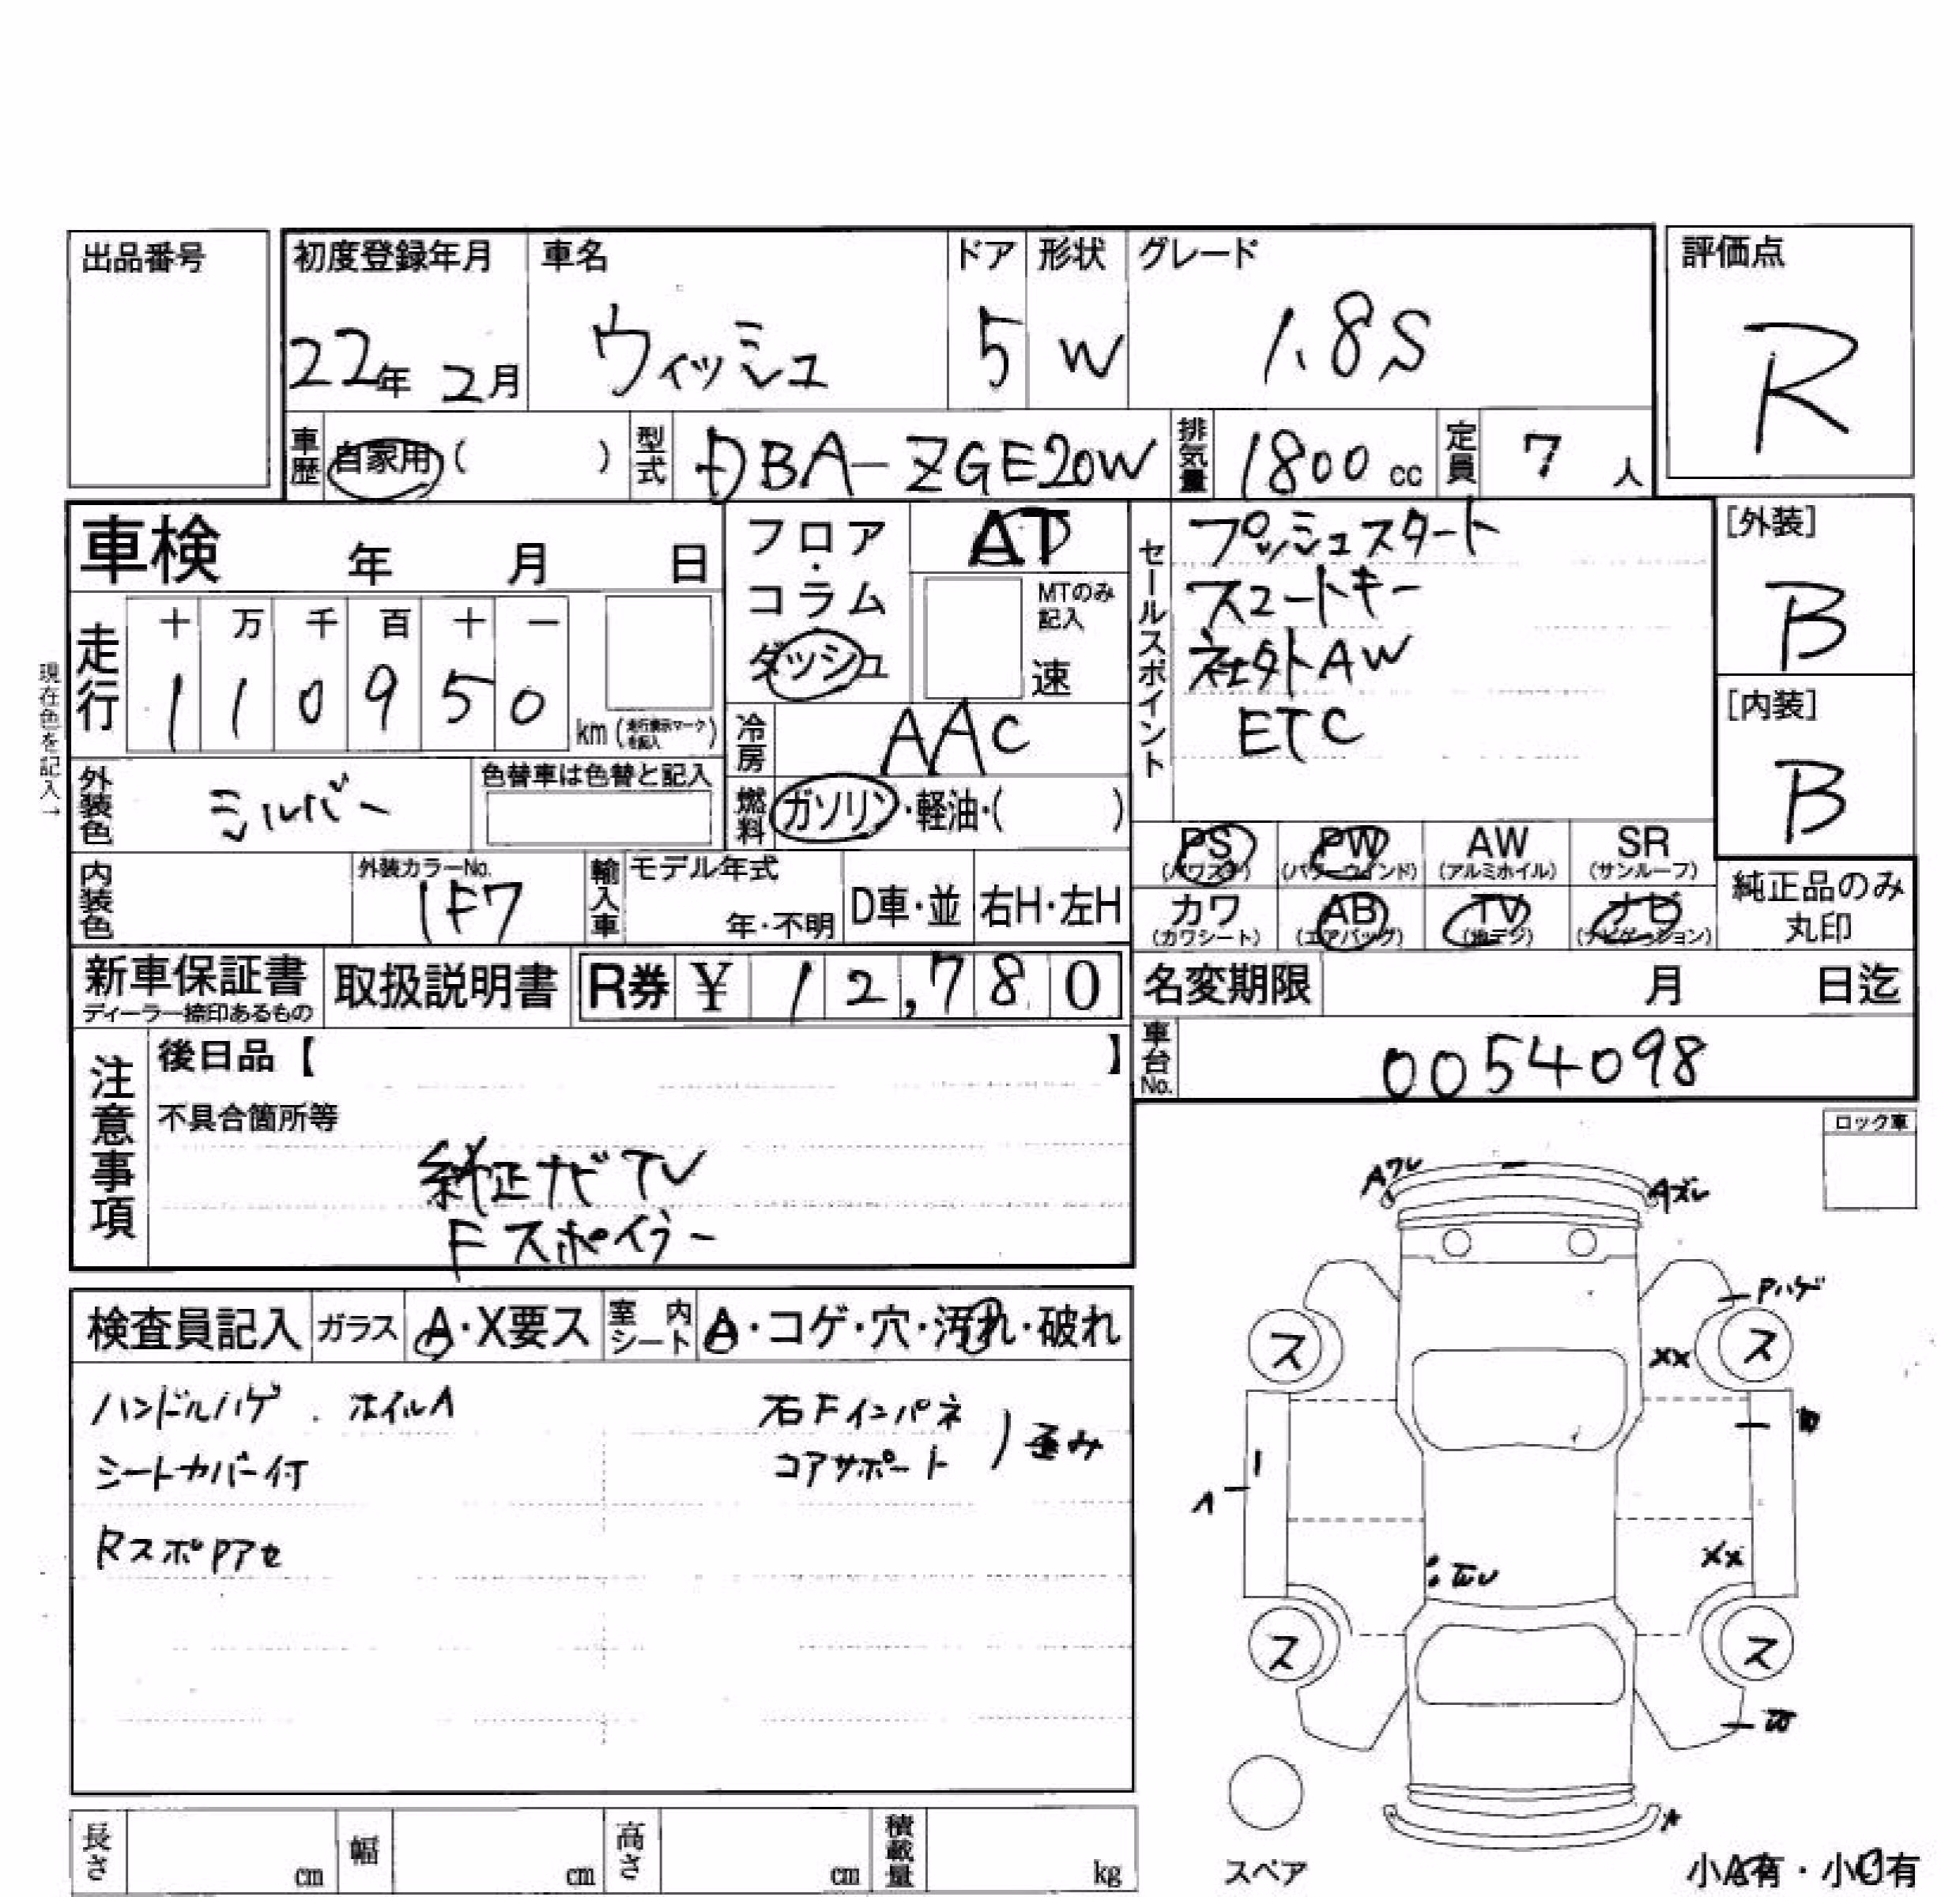 出品番号
初度登録年月 車名 ドア 形状 グレード 評価点
22年 2月 ウィッシュ 5 W 1.8S R
車歴 自家用 ( ) 型式 DBA-ZGE20W 排気量 1800 cc 定員 7 人
車検 年 月 日
フロア・コラム
ダッシュ
AT
MTのみ記入
速
セールスポイント
プッシュスタート
スマートキー
社外AW
ETC
[外装]
B
[内装]
B
現在色を記入→
走行 十 万 千 百 十 一
1 1 0 9 5 0 km (走行表示マークを記入)
冷房 AAC
外装色 シルバー 色替車は色替と記入
燃料 ガソリン・軽油・( )
PS AW SR PW
(パワステ) (パワーウインド) (アルミホイル) (サンルーフ)
カワ AB TV ナビ
(カワシート) (エアバッグ) (地デジ) (ナビゲーション)
純正品のみ
丸印
内装色 外装カラーNo. 1F7 輸入車 モデル年式 年・不明 D車・並 右H・左H
新車保証書 取扱説明書 R券 ¥ 12,780 名変期限 月 日迄
ディーラー捺印あるもの
車台No. 0054098
注意事項
後日品【 】
不具合箇所等
純正ナビTV
Fスポイラー
ロック車
検査員記入 ガラス A・X要ス 室内シート A・コゲ・穴・汚れ・破れ
ハンドルハゲ . ホイルA 右Fインパネ
シートカバー付 コアサポート ) 歪み
RスポPアセ
Aワレ
Aズレ
Pハゲ
ス ス
XX
A
XX
ス ス
A
スペア
小A有・小U有
長さ cm 幅 cm 高さ cm 積載量 kg